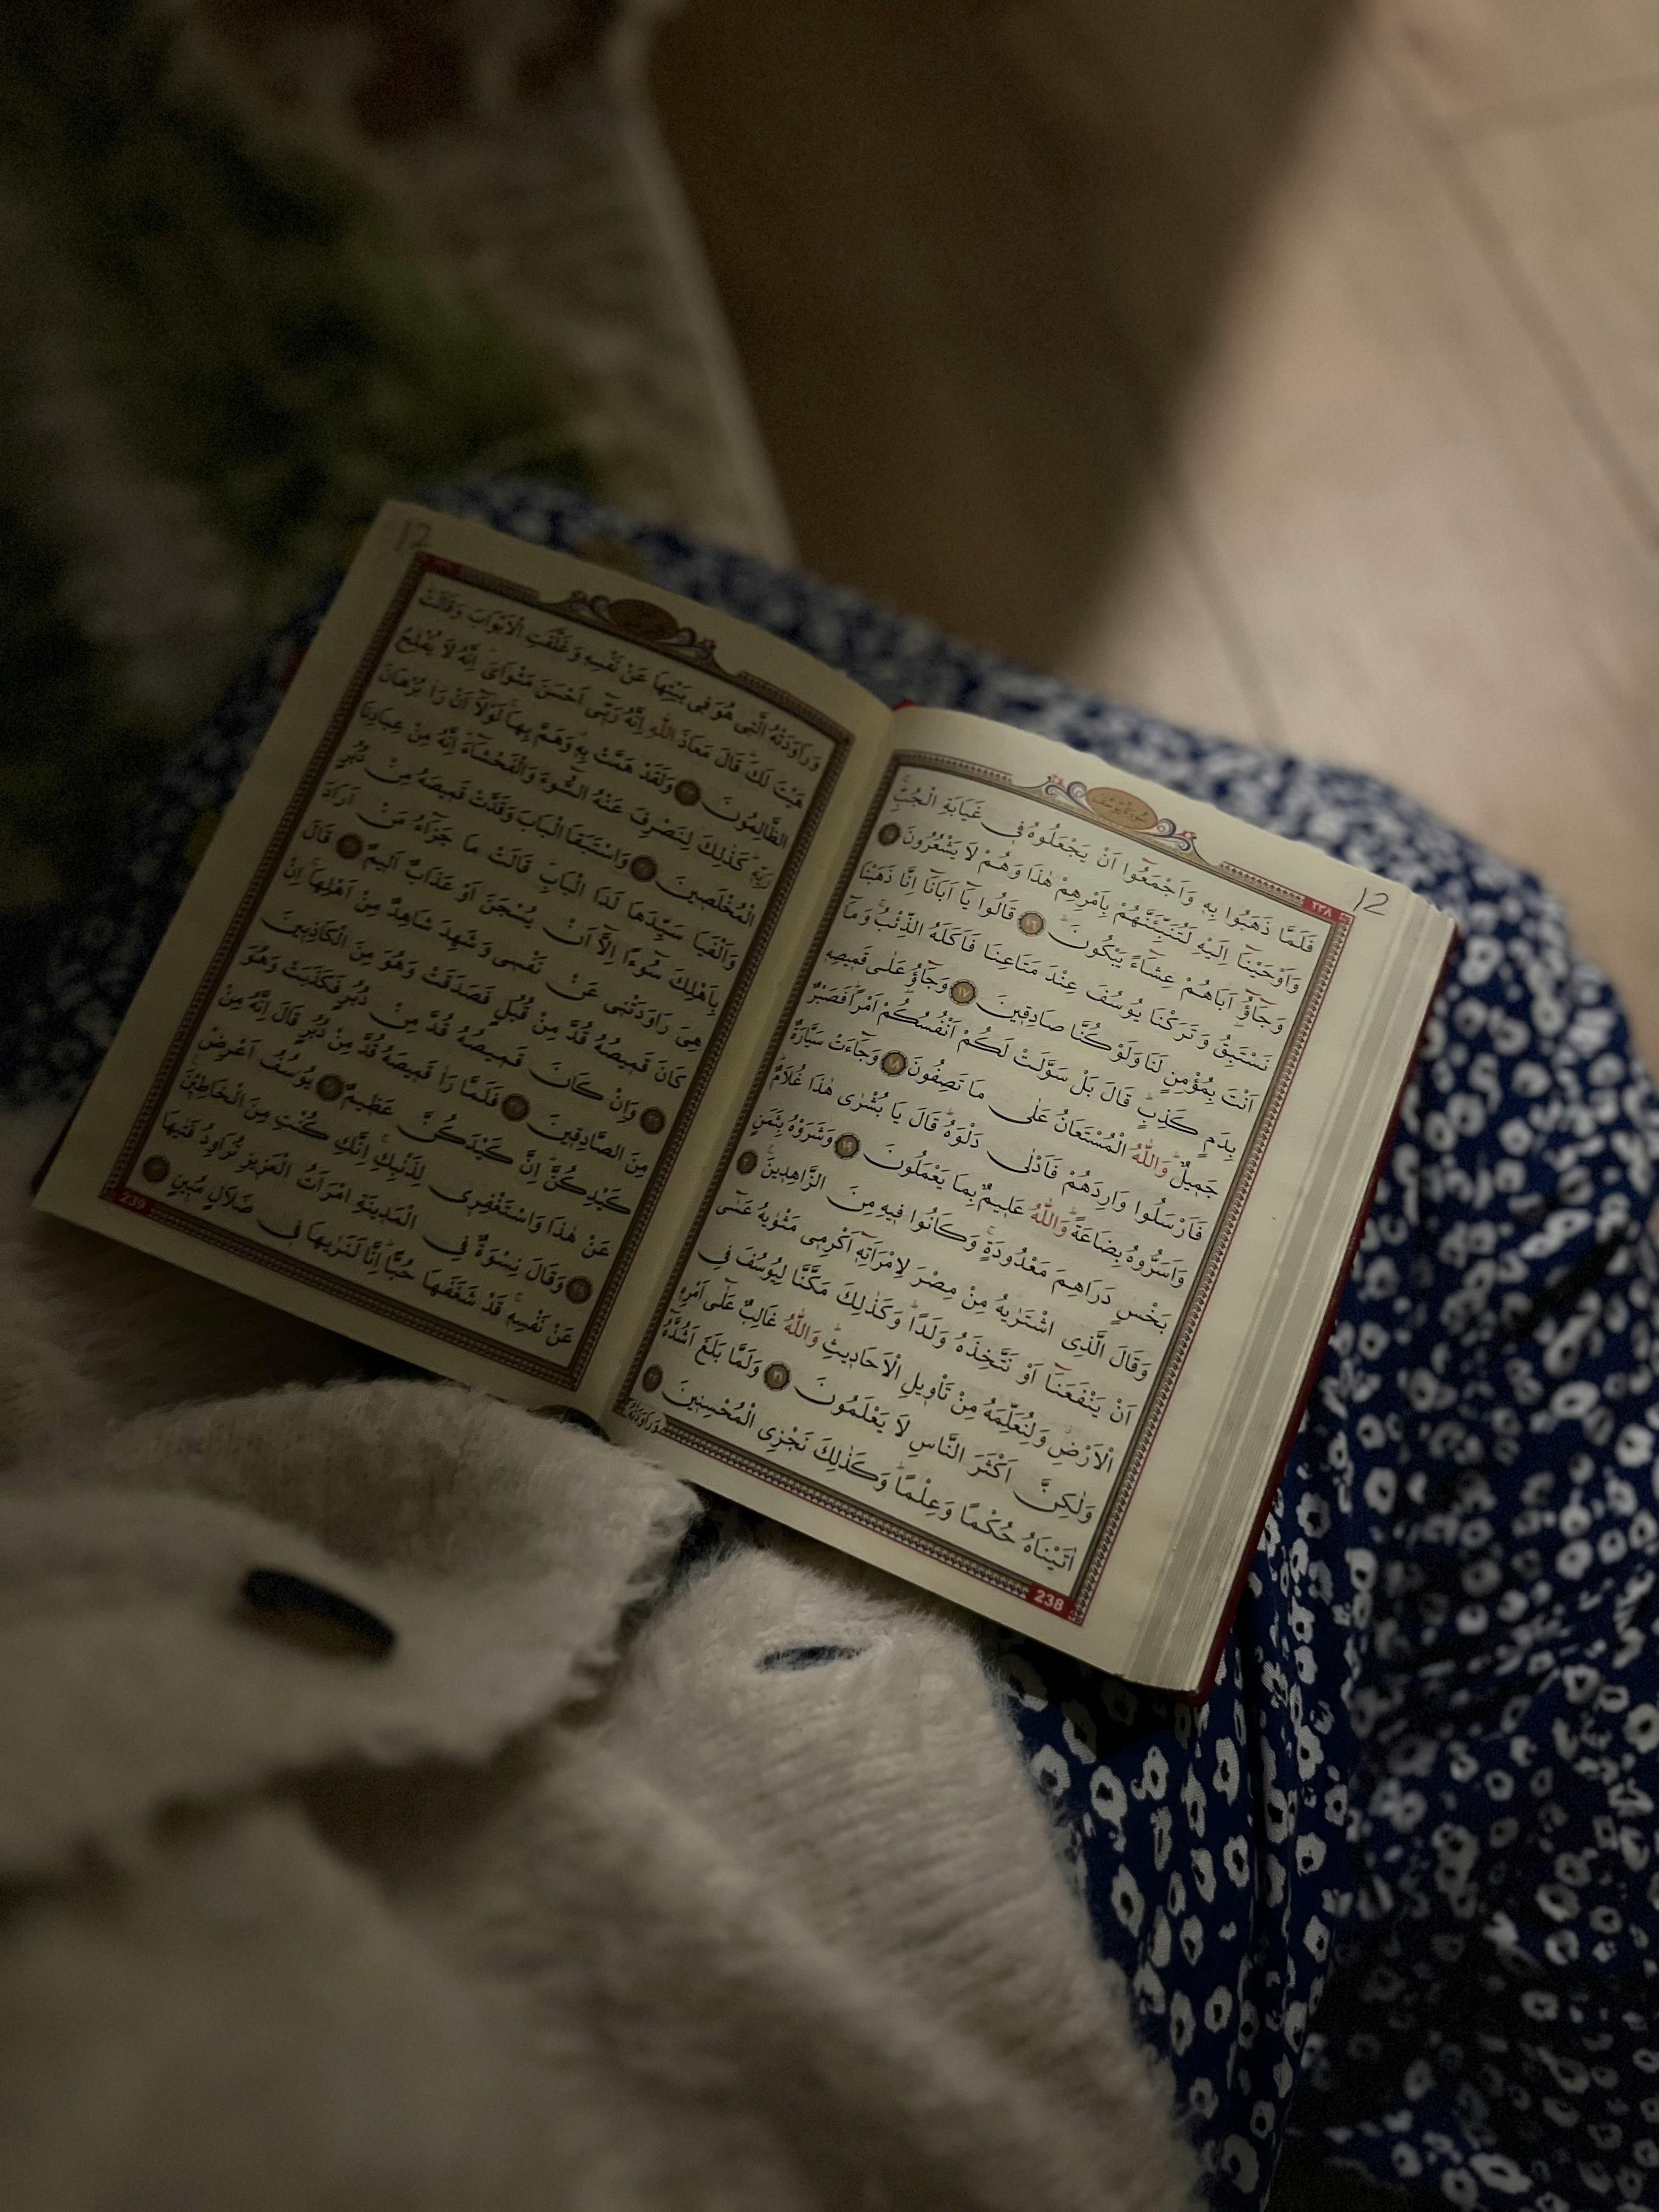 12
٢٣٨
سُورَةُ يُوسُفَ
فَلَمَّا ذَهَبُوا بِهٖ وَاَجْمَعُٓوا اَنْ يَجْعَلُوهُ فٖي غَيَابَةِ الْجُبِّۚ
وَاَوْحَيْنَٓا اِلَيْهِ لَتُنَبِّئَنَّهُمْ بِاَمْرِهِمْ هٰذَا وَهُمْ لَا يَشْعُرُونَ ﴿١٥﴾
وَجَٓاؤُٓ اَبَاهُمْ عِشَٓاءً يَبْكُونَۜ ﴿١٦﴾ قَالُوا يَٓا اَبَانَٓا اِنَّا ذَهَبْنَا
نَسْتَبِقُ وَتَرَكْنَا يُوسُفَ عِنْدَ مَتَاعِنَا فَاَكَلَهُ الذِّئْبُۚ وَمَٓا
اَنْتَ بِمُؤْمِنٍ لَنَا وَلَوْ كُنَّا صَادِقٖينَ ﴿١٧﴾ وَجَٓاؤُ عَلٰى قَمٖيصِهٖ
بِدَمٍ كَذِبٍۜ قَالَ بَلْ سَوَّلَتْ لَكُمْ اَنْفُسُكُمْ اَمْرًاۜ فَصَبْرٌ
جَمٖيلٌۜ وَاللّٰهُ الْمُسْتَعَانُ عَلٰى مَا تَصِفُونَ ﴿١٨﴾ وَجَٓاءَتْ سَيَّارَةٌ
فَاَرْسَلُوا وَارِدَهُمْ فَاَدْلٰى دَلْوَهُۜ قَالَ يَا بُشْرٰى هٰذَا غُلَامٌۜ
وَاَسَرُّوهُ بِضَاعَةًۜ وَاللّٰهُ عَلٖيمٌ بِمَا يَعْمَلُونَ ﴿١٩﴾ وَشَرَوْهُ بِثَمَنٍ
بَخْسٍ دَرَاهِمَ مَعْدُودَةٍۚ وَكَانُوا فٖيهِ مِنَ الزَّاهِدٖينَ۟ ﴿٢٠﴾
وَقَالَ الَّذِي اشْتَرٰيهُ مِنْ مِصْرَ لِامْرَاَتِهٖٓ اَكْرِمٖي مَثْوٰيهُ عَسٰٓى
اَنْ يَنْفَعَنَٓا اَوْ نَتَّخِذَهُ وَلَدًاۜ وَكَذٰلِكَ مَكَّنَّا لِيُوسُفَ فِي
الْاَرْضِۘ وَلِنُعَلِّمَهُ مِنْ تَاْوٖيلِ الْاَحَادٖيثِۜ وَاللّٰهُ غَالِبٌ عَلٰٓى اَمْرِهٖ
وَلٰكِنَّ اَكْثَرَ النَّاسِ لَا يَعْلَمُونَ ﴿٢١﴾ وَلَمَّا بَلَغَ اَشُدَّهُٓ
اٰتَيْنَاهُ حُكْمًا وَعِلْمًاۜ وَكَذٰلِكَ نَجْزِي الْمُحْسِنٖينَ ﴿٢٢﴾
وَرَاوَدَتْهُ
238
12
وَرَاوَدَتْهُ الَّتٖي هُوَ فٖي بَيْتِهَا عَنْ نَفْسِهٖ وَغَلَّقَتِ الْاَبْوَابَ وَقَالَتْ
هَيْتَ لَكَۜ قَالَ مَعَاذَ اللّٰهِ اِنَّهُ رَبّٖٓي اَحْسَنَ مَثْوَايَۜ اِنَّهُ لَا يُفْلِحُ
الظَّالِمُونَ ﴿٢٣﴾ وَلَقَدْ هَمَّتْ بِهٖۚ وَهَمَّ بِهَاۚ لَوْلَٓا اَنْ رَاٰ بُرْهَانَ
رَبِّهٖۜ كَذٰلِكَ لِنَصْرِفَ عَنْهُ السُّٓوءَ وَالْفَحْشَٓاءَۜ اِنَّهُ مِنْ عِبَادِنَا
الْمُخْلَصٖينَ ﴿٢٤﴾ وَاسْتَبَقَا الْبَابَ وَقَدَّتْ قَمٖيصَهُ مِنْ دُبُرٍ
وَاَلْفَيَا سَيِّدَهَا لَدَا الْبَابِۜ قَالَتْ مَا جَزَٓاءُ مَنْ اَرَادَ
بِاَهْلِكَ سُٓوءًا اِلَّٓا اَنْ يُسْجَنَ اَوْ عَذَابٌ اَلٖيمٌ ﴿٢٥﴾ قَالَ
هِيَ رَاوَدَتْنٖي عَنْ نَفْسٖي وَشَهِدَ شَاهِدٌ مِنْ اَهْلِهَاۚ اِنْ
كَانَ قَمٖيصُهُ قُدَّ مِنْ قُبُلٍ فَصَدَقَتْ وَهُوَ مِنَ الْكَاذِبٖينَ
﴿٢٦﴾ وَاِنْ كَانَ قَمٖيصُهُ قُدَّ مِنْ دُبُرٍ فَكَذَبَتْ وَهُوَ
مِنَ الصَّادِقٖينَ ﴿٢٧﴾ فَلَمَّا رَاٰ قَمٖيصَهُ قُدَّ مِنْ دُبُرٍ قَالَ اِنَّهُ مِنْ
كَيْدِكُنَّۜ اِنَّ كَيْدَكُنَّ عَظٖيمٌ ﴿٢٨﴾ يُوسُفُ اَعْرِضْ
عَنْ هٰذَا وَاسْتَغْفِرٖي لِذَنْبِكِۚ اِنَّكِ كُنْتِ مِنَ الْخَاطِـٖٔينَ۟
﴿٢٩﴾ وَقَالَ نِسْوَةٌ فِي الْمَدٖينَةِ امْرَاَتُ الْعَزٖيزِ تُرَاوِدُ فَتٰيهَا
عَنْ نَفْسِهٖۚ قَدْ شَغَفَهَا حُبًّاۜ اِنَّا لَنَرٰيهَا فٖي ضَلَالٍ مُبٖينٍ ﴿٣٠﴾
239